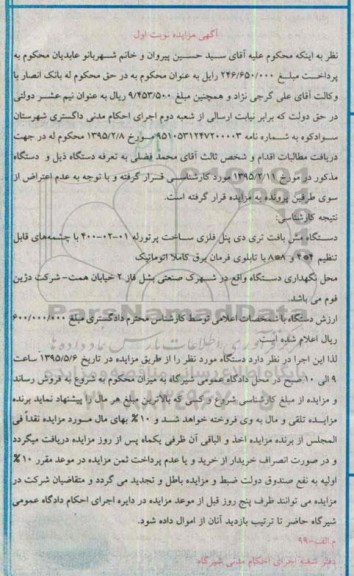 آگهی مزایده نوبت اول
نظر به اینکه محکوم علیه آقای سید حسین پیروان و خانم شهربانو عابدیان محکوم به
پرداخت مبلغ ۲۴۶/۶۵۰/۰۰۰ رایل به عنوان محکوم به در حق محکوم له بانک انصار با
وکالت آقای علی گرجی نژاد و همچنین مبلغ ۹/۴۵۳/۵۰۰ ریال به عنوان نیم عشر دولتی
در حق دولت که برابر نیابت ارسالی از شعبه دوم اجرای احکام مدنی داگستری شهرستان
سوادکوه به شماره نامه ۹۵۱۰۵۳۱۲۴۷۲۰۰۰۰۳ مورخ ۱۳۹۵/۲/۸ محکوم له در جهت
دریافت مطالبات اقدام و شخص ثالث آقای محمد فضلی به تعرفه دستگاه ذیل و دستگاه
مذکور در مورخ ۱۳۹۵/۲/۱۱ مورد کارشناسی قرار گرفته و با توجه به عدم اعتراض از
سوی طرفین پرونده به مزایده قرار گرفته است.
نتیجه کارشناسی:
دستگاه مش بافت تری دی پنل فلزی ساخت پرتورله ۰۱-۰۲-۴۰۰ با چشمه‌های قابل
تنظیم ۴*۴ و ۸*۸ با تابلوی فرمان برق کاملا اتوماتیک
محل نگهداری دستگاه واقع در شهرک صنعتی بشل فاز ۲ خیابان همت- شرکت دژین
فوم می باشد.
ارزش دستگاه با مشخصات اعلامی توسط کارشناس محترم دادگستری مبلغ ۶۰۰/۰۰۰/۰۰۰
ریال اعلام شده است.
لذا این اجرا در نظر دارد دستگاه مورد نظر را از طریق مزایده در تاریخ ۱۳۹۵/۵/۶ ساعت
۹ الی ۱۰ صبح در محل دادگاه عمومی شیرگاه به میزان محکوم به شروع به فروش رساند
و مزایده از مبلغ کارشناسی شروع و کسی که بالاترین مبلغ هر مال را پیشنهاد نماید برنده
مزایده تلقی و مال به وی فروخته خواهد شد و ۱۰% بهای مال مورد مزایده نقداً فی
المجلس از برنده مزایده اخذ و الباقی آن ظرفی یکماه پس از روز مزایده دریافت میگردد
و در صورت انصراف خریدار از خرید و یا عدم پرداخت ثمن مزایده در موعد مقرر ۱۰%
اولیه به نفع صندوق دولت ضبط و مزایده باطل و تجدید می گردد و متقاضیان شرکت در
مزایده می توانند ظرف پنج روز قبل از موعد مزایده در دایره اجرای احکام دادگاه عمومی
شیرگاه حاضر تا ترتیب بازدید آنان از اموال داده شود.
م-الف-۹۹۰
دفتر شعبه اجرای احکام مدنی شیرگاه